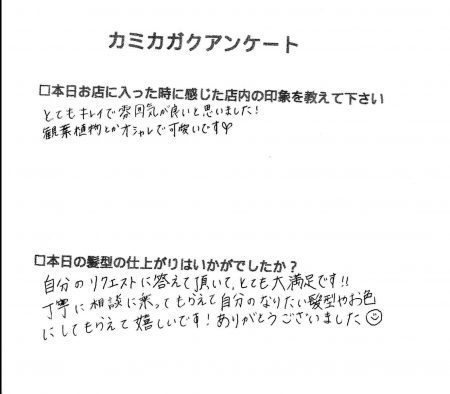 カミカガクアンケート
□本日お店に入った時に感じた店内の印象を教えて下さい
とてもキレイで雰囲気が良いと思いました!
観葉植物とかオシャレで可愛いです♡
□本日の髪型の仕上がりはいかがでしたか?
自分のリクエストに答えて頂いて、とても大満足です!!
丁寧に相談に乗ってもらえて自分のなりたい髪型やお色
にしてもらえて嬉しいです!ありがとうございました☺